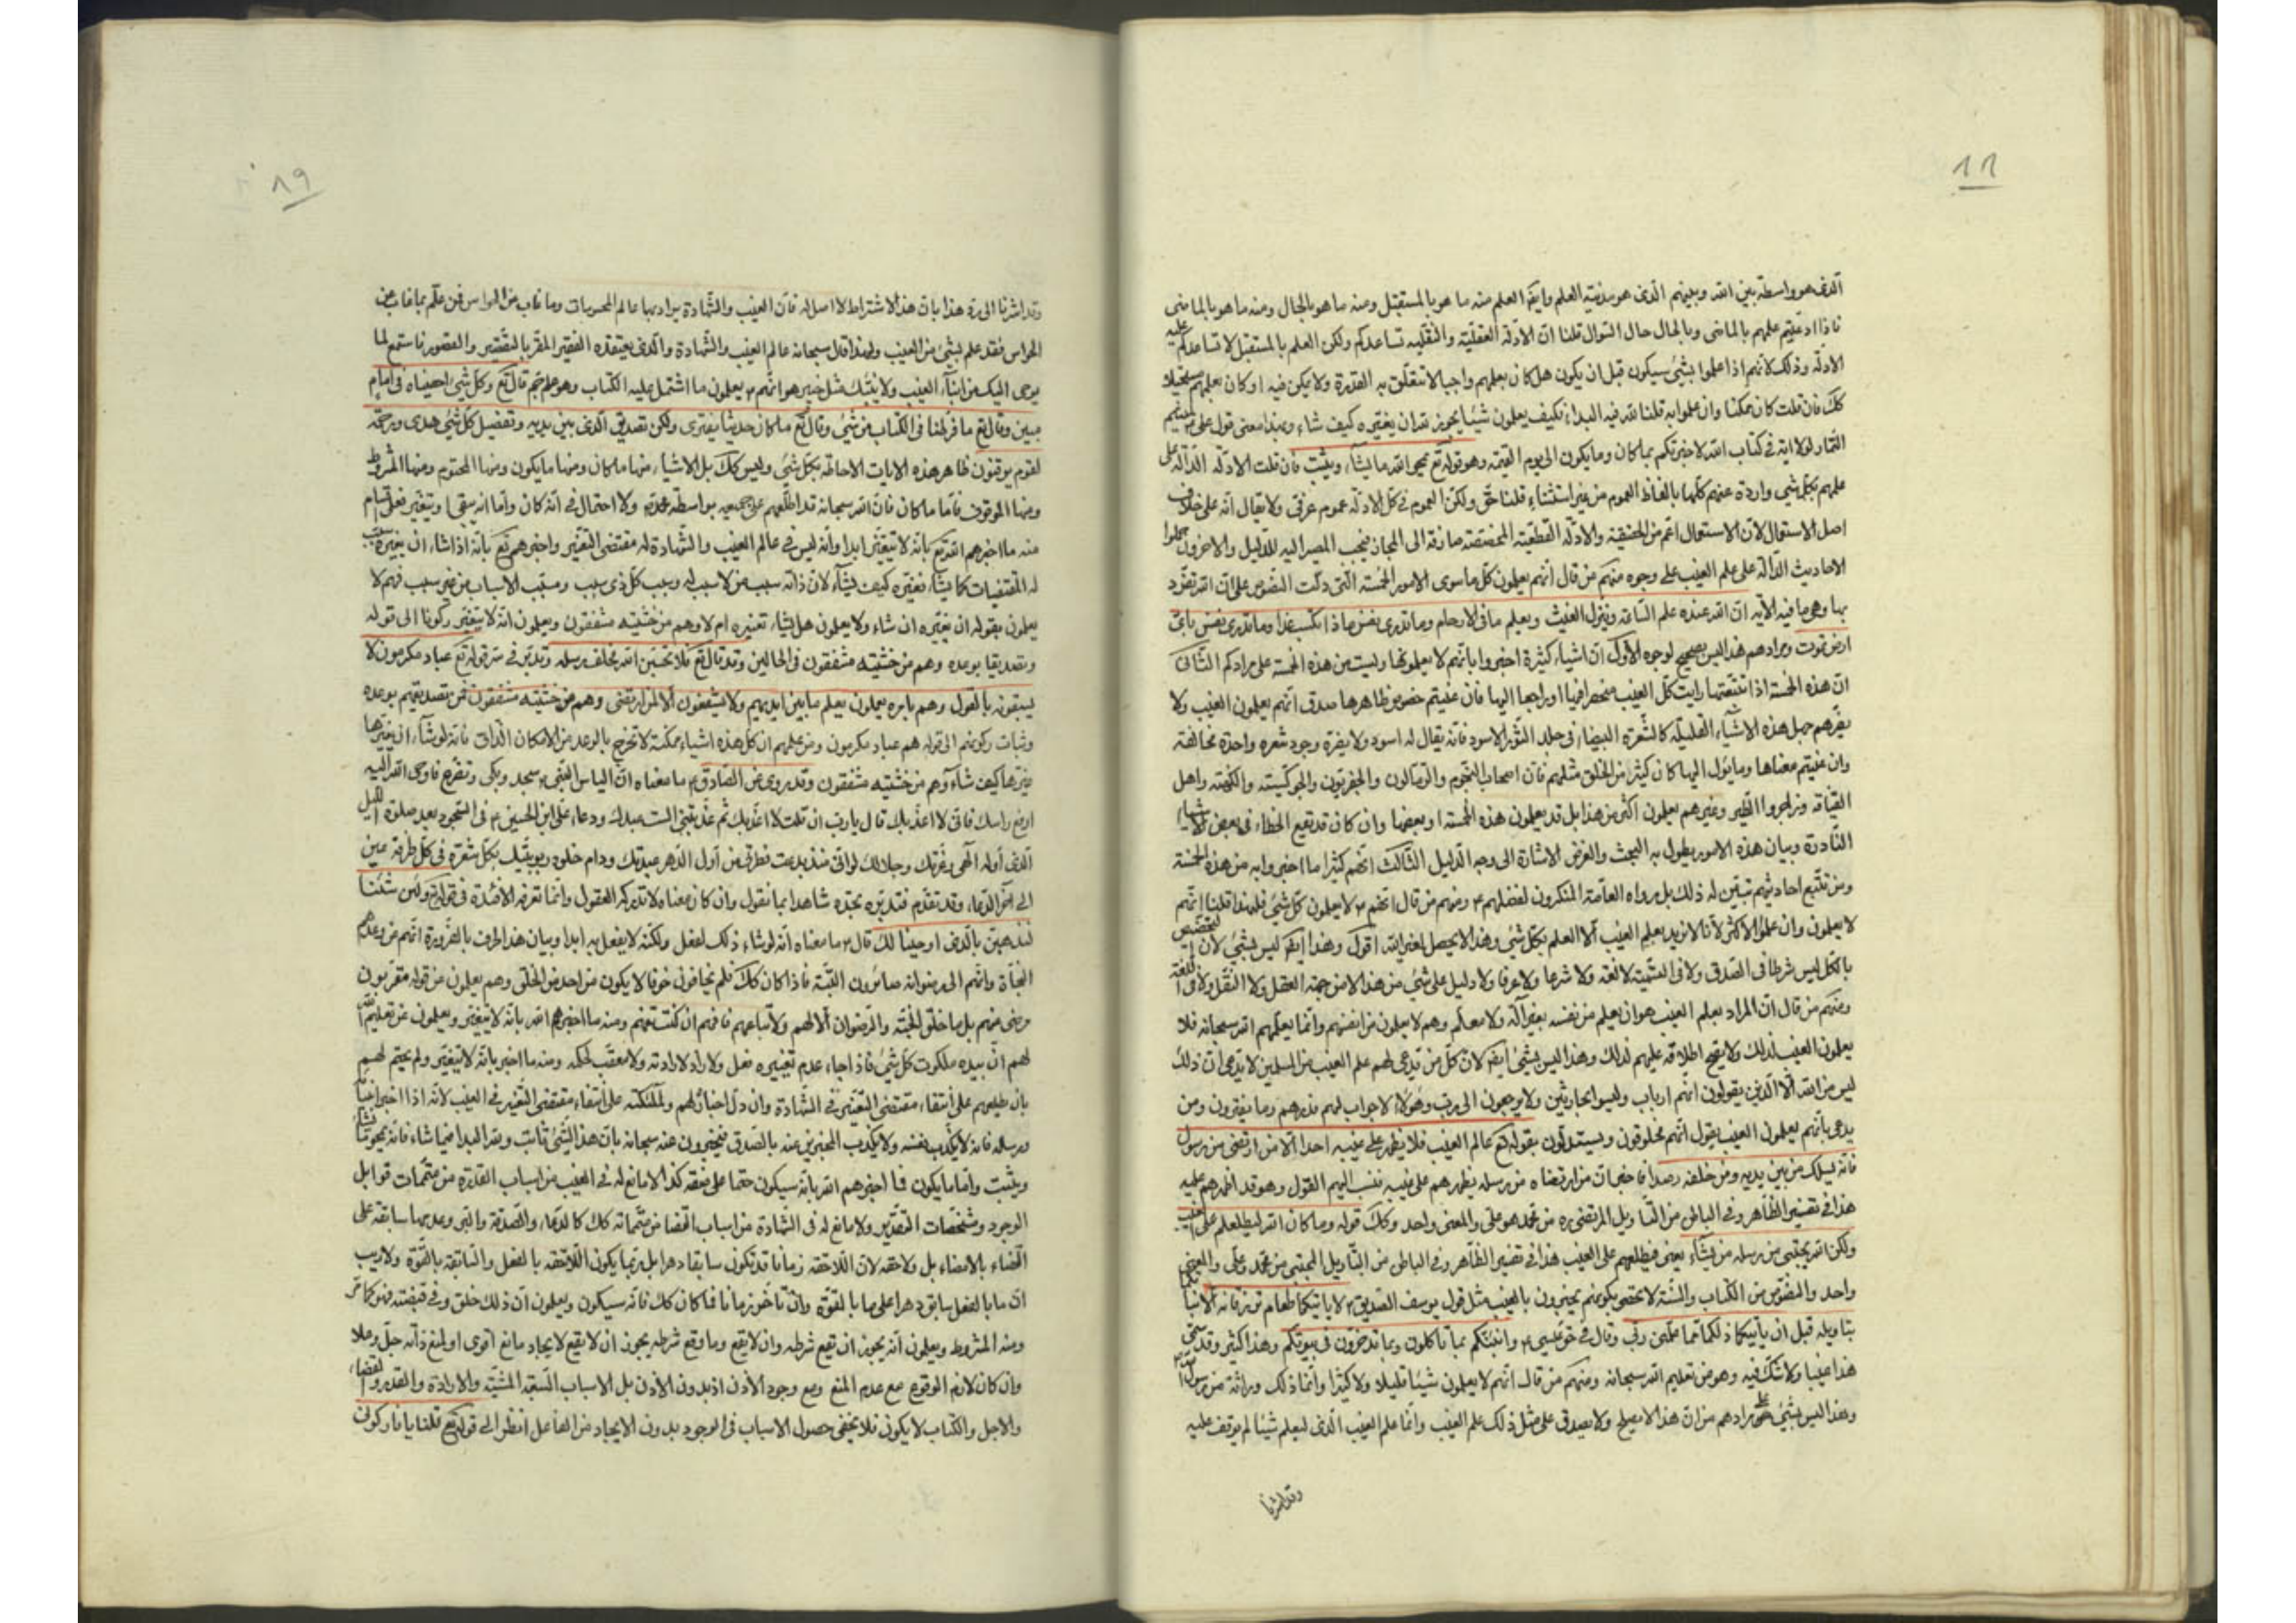 ١١
الذی هو واسطة بین الله وبینهم الذی هو مدینة العلم وایضا العلم منه ما هو بالمستقبل ومنه ما هو بالحال ومنه ما هو بالماضی
فاذا ادعیتم علمهم بالماضی وبالحال حال السؤال قلنا ان الادلة العقلیة والنقلیة تساعدکم علیه ولکن العلم بالمستقبل لا تساعدکم
الادلة وذلک لانهم اذا علموا بشیء سیکون قبل ان یکون هل کان بعلمهم واجبا لا تتعلق به القدرة ولا یکون فیه او کان بعلمهم مستحیلا
کک فان قلت کان ممکنا وان علموا به قلنا لله فیه البداء فکیف یعلمون شیئا یجوز لله ان یغیره کیف شاء وهذا معنی قول علی لمیثم
التمار لولا ایة فی کتاب الله لاخبرتکم بما کان وما یکون الی یوم القیمة وهو قوله تع یمحو الله ما یشاء ویثبت فان قلت الادلة الدالة علی
علمهم بکل شیء واردة عنهم کلها بالفاظ العموم من غیر استثناء قلنا حق ولکن العموم فی کل الادلة عموم عرفی ولا یقال انه علی خلاف
اصل الاستعمال لان الاستعمال اعم من الحقیقة والادلة القطعیة المخصصة صارفة الی المجاز فیجب المصیر الیه للدلیل والاخرون حملوا
الاحادیث الدالة علی علم الغیب علی وجوه منهم من قال انهم یعلمون کل ما سوی الامور الخمسة التی دلت النصوص علی ان الله تفرد
بها وهی ما فیه الآیة ان الله عنده علم الساعة وینزل الغیث ویعلم ما فی الارحام وما تدری نفس ماذا تکسب غدا وما تدری نفس بای
ارض تموت ومرادهم هذا لیس بصحیح لوجوه الاول ان اشیاء کثیرة اخبروا بانهم لا یعلمونها ولیست من هذه الخمسة علی مرادکم الثانی
ان هذه الخمسة اذا تتبعتها رایت کل الغیب منحصرا فیها او راجعا الیها فان عنیتم خصوص ظاهرها صدق انهم یعلمون الغیب ولا
یضرهم جهل هذه الاشیاء القلیلة کالشعرة البیضاء فی جلد الثور الاسود فانه یقال له اسود ولا یضره وجود شعرة واحدة مخالفة
وان عنیتم معناها وما یؤل الیها کان کثیر من الخلق مثلهم فان اصحاب النجوم والرمالون والجفریون والکهنة واهل
القیافة وزاجروا الطیر وغیرهم یعلمون اکثر من هذا بل قد یعلمون هذه الخمسة او بعضها وان کان قد یقع الخطاء فی بعض الاشیاء
النادرة وبیان هذه الامور یطول به البحث والغرض الاشارة الی وجه الدلیل الثالث انهم کثیرا ما اخبروا به من هذه الخمسة
ومن تتبع احادیثهم تبین له ذلک بل رواه العامة المنکرون لفضلهم ومنهم من قال انهم لا یعلمون کل شیء فلهذا قلنا انهم
لا یعلمون وان علموا الاکثر لانا لا نرید بعلم الغیب الا العلم بکل شیء وهذا لا یحصل لغیر الله اقول وهذا ایضا لیس بشیء لان التخصیص
بالکل لیس شرطا فی الصدق ولا فی التسمیة لا لغة ولا شرعا ولا عرفا ولا دلیل علی شیء من هذا لا من جهة العقل ولا النقل ولا فی اللغة
ومنهم من قال ان المراد بعلم الغیب هو ان یعلم من نفسه بغیر آلة ولا معلم وهم لا یعلمون من انفسهم وانما یعلمهم الله سبحانه فلا
یعلمون الغیب لذلک ولا یصح اطلاقه علیهم لذلک وهذا لیس بشیء ایضا لان کل من یدعی لهم علم الغیب من المسلمین لا یدعی ان ذلک
لیس من الله الا الذین یقولون انهم ارباب ولیسوا بحادثین ولا یرجعون الی رب وهؤلاء لا جواب لهم فذرهم وما یفترون ومن
یدعی بانهم یعلمون الغیب یقول انهم مخلوقون ویستدلون بقوله تع عالم الغیب فلا یظهر علی غیبه احدا الا من ارتضی من رسول
فانه یسلک من بین یدیه ومن خلفه رصدا فاخبر ان من ارتضاه من رسله یظهرهم علی غیبه فنسب الیهم القول وهو قد اظهرهم علیه
هذا فی تفسیر الظاهر وفی الباطن من التاویل المرتضی من محمد هو علی والمعنی واحد وکک قوله وما کان الله لیطلعکم علی الغیب
ولکن الله یجتبی من رسله من یشاء یعنی فیطلعهم علی الغیب هذا فی تفسیر الظاهر وفی الباطن من التاویل المجتبی من محمد وعلی والمعنی
واحد والنصوص من الکتاب والسنة لا تحصی بکونهم یخبرون بالغیب مثل قول یوسف الصدیق لا یاتیکما طعام ترزقانه الا نباتکما
بتاویله قبل ان یاتیکما ذلکما مما علمنی ربی وقال فی حق عیسی وانبئکم بما تاکلون وما تدخرون فی بیوتکم وهذا کثیر وقد سمی
هذا غیبا ولا شک فیه وهو من تعلیم الله سبحانه ومنهم من قال انهم لا یعلمون شیئا قلیلا ولا کثیرا وانما ذلک وراثة من رسول الله
وهذا لیس بشیء علی مرادهم من ان هذا لا یصلح ولا یصدق علی مثل ذلک علم الغیب وانما علم الغیب الذی لیعلم شیئا لم یوقف علیه
وقد اشرنا
٨٩
وقد اشرنا الی رد هذا بان هذا الاشتراط لا اصل له فان الغیب والشهادة یراد بهما عالم المحسوسات وما غاب عن الحواس فمن علم بما غاب عن
الحواس فقد علم بشیء من الغیب ولهذا قال سبحانه عالم الغیب والشهادة والذی یعتقده الفقیر المقر بالتقصیر والقصور فاستمع لما
یوحی الیک من انباء الغیب ولا ینبئک مثل خبیر هو انهم یعلمون ما اشتمل علیه الکتاب وهو علم جم قال تع وکل شیء احصیناه فی امام
مبین وقال تع ما فرطنا فی الکتاب من شیء وقال تع ما کان حدیثا یفتری ولکن تصدیق الذی بین یدیه وتفصیل کل شیء هدی ورحمة
لقوم یوقنون ظاهر هذه الایات الاحاطة بکل شیء ولیس کک بل الاشیاء منها ما کان ومنها ما یکون ومنها المحتوم ومنها المشروط
ومنها الموقوف فاما ما کان فان الله سبحانه قد اطلعهم علی جمیعه بواسطة محمد ولا احتمال فی انه کان واما انه یبقی او یتغیر فعلی اقسام
منه ما اخبرهم الله تع بانه لا یتغیر ابدا وانه لیس فی عالم الغیب والشهادة له مقتضی التغییر واخبرهم تع بانه اذا شاء ان یغیره سبب
له المقتضیات کما یشاء فغیره کیف یشاء لان ذاته سبب من لا سبب له وسبب کل ذی سبب ومسبب الاسباب من غیر سبب فهم لا
یعلمون بقوله ان یغیره ان شاء ولا یعلمون هل یشاء تغییره ام لا وهم من خشیته مشفقون ویعلمون انه لا یتغیر رکونا الی قوله
وتصدیقا بوعده وهم من خشیته مشفقون فی الحالین وقد قال تع فلا تحسبن الله مخلف وعده رسله وتدبر فی سر قوله تع عباد مکرمون لا
یسبقونه بالقول وهم بامره یعملون یعلم ما بین ایدیهم ولا یشفعون الا لمن ارتضی وهم من خشیته مشفقون فمن تصدیقهم بوعده
وثبات رکونهم الی قوله هم عباد مکرمون ومن علمهم ان کل هذه اشیاء ممکنة لا تخرج بالوعد من الامکان الذاتی فانه لو شاء ان یغیرها
غیرها کیف شاء وهم من خشیته مشفقون وقد روی عن الصادق ما معناه ان الیاس النبی سجد وبکی وتضرع فاوحی الله الیه
ارفع راسک فانی لا اعذبک قال یا رب ان قلت لا اعذبک ثم عذبتنی الست عبدک ودعاء علی ابن الحسین فی السجود بعد صلوة اللیل
الذی اوله الهی وعزتک وجلالک لو انی منذ بدعت فطرتی من اول الدهر عبدتک ودام خلود ربوبیتک بکل شعرة فی کل طرفة عین
الی آخر الدعاء وقد تقدم فتدبره تجده شاهدا بما نقول وان کان معناه لا تدرکه العقول وانما تعرفه الافئدة فی قوله تع ولئن شئنا
لنذهبن بالذی اوحینا الیک قال ما معناه انه لو شاء ذلک لفعل ولکنه لا یفعل به ابدا وبیان هذا الحرف بالضرورة انهم من وعدهم
النجاة وانهم الی رضوانه صائرون البتة فاذا کان کک فلم یخافونی خوفا لا یکون من احد من الخلق وهم یعلمون من قوله مقربون
مرضی عنهم بل ما خلق الجنة والرضوان الا لهم ولاتباعهم فافهم ان کنت تفهم ومنه ما اخبرهم الله بانه لا یتغیر ویعلمون عن تعلیم الله
لهم ان بیده ملکوت کل شیء فاذا جاء عدم تغییره فعل ولا راد لارادته ولا معقب لحکمه ومنه ما اخبر بانه لا یتغیر ولم یحتم لهم
بان یطلعهم علی انتفاء مقتضی التغییر فی الشهادة وان دل اخباره لهم ولملئکته علی انتفاء مقتضی التغییر فی الغیب لانه اذا اخبر انبیاءه
ورسله فانه لا یکذب نفسه ولا یکذب المخبرین عنه بالصدق فیخبرون عنه سبحانه بان هذا الشیء ثابت ولله البدا فیما شاء فانه یمحو ما یشاء
ویثبت واما ما یکون فما اخبرهم الله بانه سیکون حتما علی صفة کذا لا مانع له فی الغیب من اسباب القدرة من متممات قوابل
الوجود ومشخصات التقدیر ولا مانع له فی الشهادة من اسباب القضا من متمماته کک کالدعاء والصدقة والبر وعدمها سابقة علی
القضاء بالامضاء بل ولاحقة لان اللاحقة زمانا قد تکون سابقا دهرا بل ربما یکون اللاحقة بالفعل والسابقة بالقوة ولا ریب
ان ما بالفعل سابق دهرا علی ما بالقوة وان تاخر زمانا فما کان کک فانه سیکون ویعلمون ان ذلک خلق وفی قبضته فهو کما مر
ومنه المشروط ویعلمون انه یجوز ان یقع شرطه وان لا یقع وما وقع شرطه یجوز ان لا یقع لایجاد مانع اقوی او لمنع ذاته جل وعلا
وان کان لازم الوقوع مع عدم المنع ومع وجود الاذن اذ بدون الاذن بل الاسباب السبعة المشیة والارادة والقدر والقضاء
والاجل والکتاب لا یکون فلا یخفی حصول الاسباب فی الوجود بدون الایجاد من الفاعل انظر الی قوله تع قلنا یا نار کونی